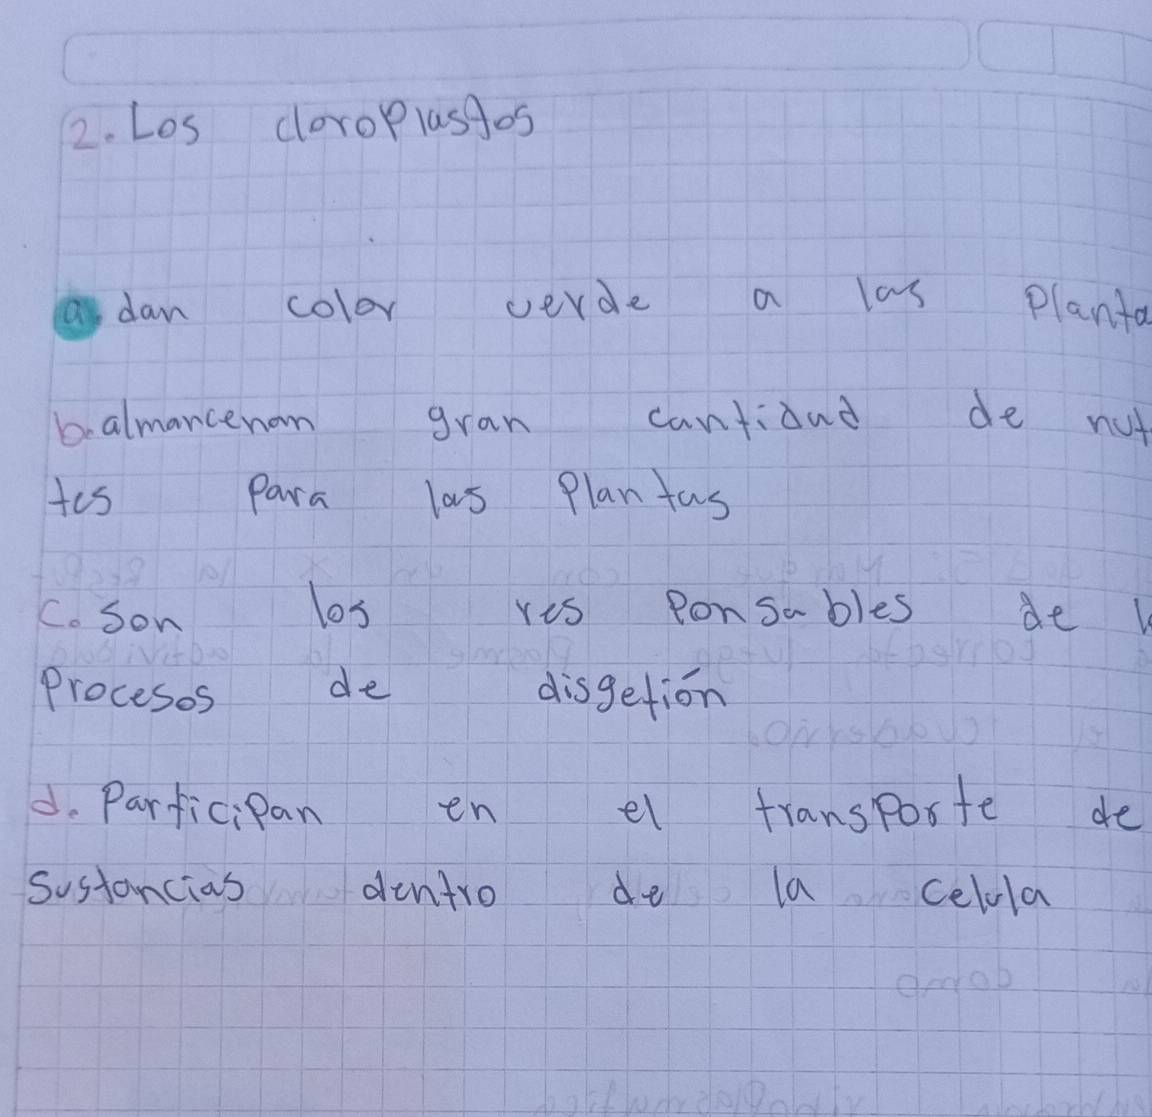 2. Los cloroplastos
a. dan color verde a las Planta
b. almancenan gran cantidad de nut
tes Para las Plantas
c. son los res Ponsables de l
Procesos de disgetión
d. Participan en el transporte de
sustancias dentro de la celula